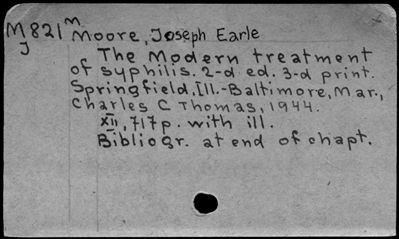 M821 m Moore, Joseph Earle
J
The Modern treatment
of syphilis. 2-d ed. 3-d print.
Springfield, Ill.-Baltimore, Mar.,
Charles C Thomas, 1944.
XII, 717 p. with ill.
Bibliogr. at end of chapt.